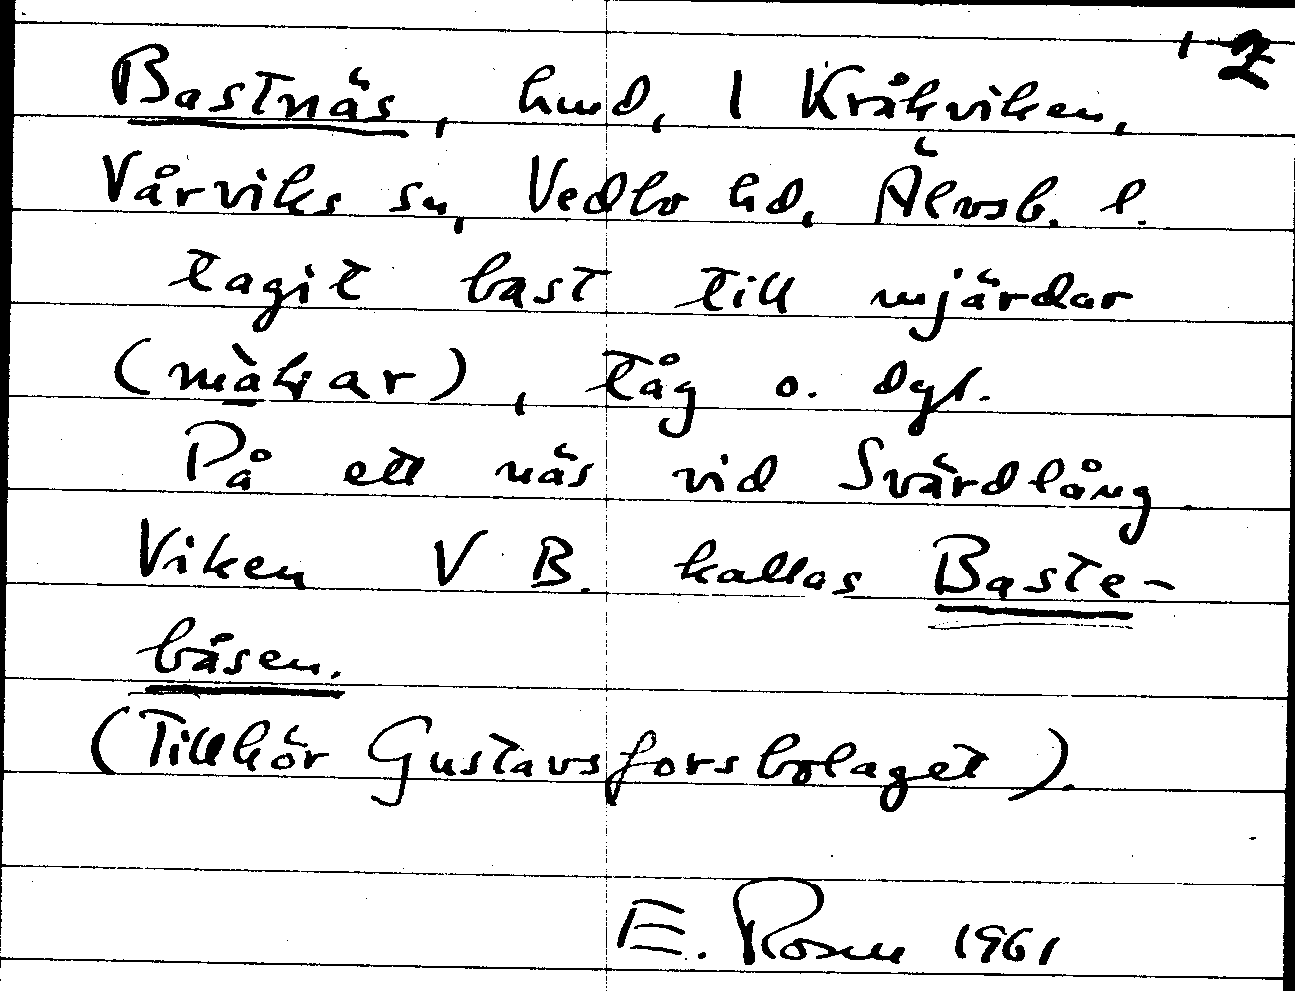 2
Bastnäs, hmd, 1 Kråkviken,
Vårviks sn, Vedbo hd, Älvsb. l.
tagit bast till mjärdar
(mäkar), tåg o. dyl.
På ett näs vid Svärdlång
Viken V B. kallas Baste-
båsen.
(Tillhör Gustavsforsbolaget).
E. Rosen 1961